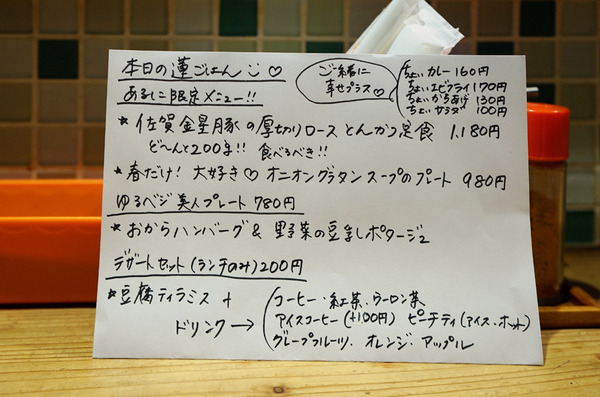 本日の蓮ごはん ♡
ご一緒に
幸せプラス♡
ちょいカレー 160円
ちょいエビフライ 170円
ちょいからあげ 130円
ちょいサラダ 100円
あるじこ限定メニュー!!
★ 佐賀 金星豚の厚切りロースとんかつ定食 1,180円
ど〜んと200g!! 食べるべき!!
★ 春だけ! 大好き♡オニオングラタンスープのプレート 980円
ゆるベジ美人プレート 780円
★ おからハンバーグ & 野菜の豆乳ポタージュ
デザートセット(ランチのみ)200円
★ 豆腐ティラミス +
ドリンク→
コーヒー・紅茶・ウーロン茶
アイスコーヒー(+100円) ピーチティ(アイス・ホット)
グレープフルーツ・オレンジ・アップル